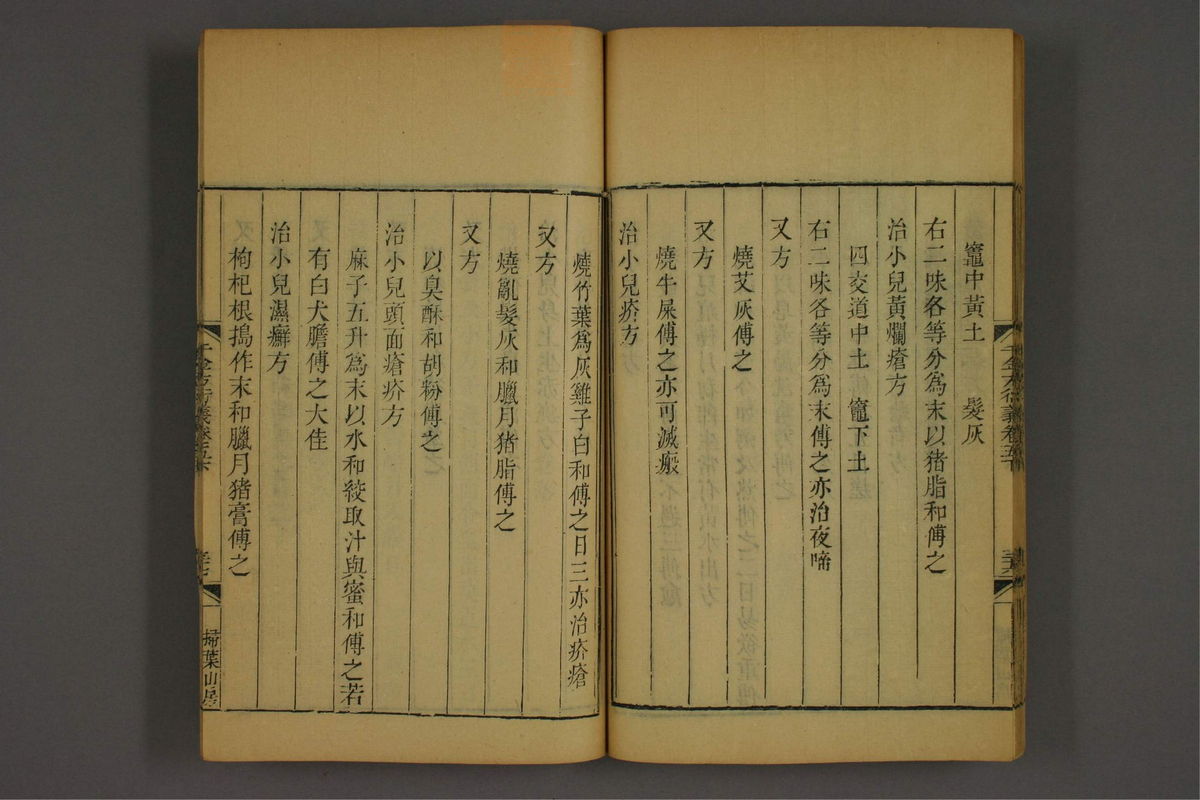 竈中黃土　髮灰
右二味各等分爲末以猪脂和傅之
治小兒黃爛瘡方
四交道中土　竈下土
右二味各等分爲末傅之亦治夜啼
又方
燒艾灰傅之
又方
燒牛屎傅之亦可滅瘢
治小兒疥方
燒竹葉爲灰雞子白和傅之日三亦治疥瘡
又方
燒亂髮灰和臘月猪脂傅之
又方
以臭酥和胡粉傅之
治小兒頭面瘡疥方
麻子五升爲末以水和絞取汁與蜜和傅之若
有白犬膽傅之大佳
治小兒濕癬方
枸杞根搗作末和臘月猪膏傅之
千金方衍義卷五下
掃葉山房